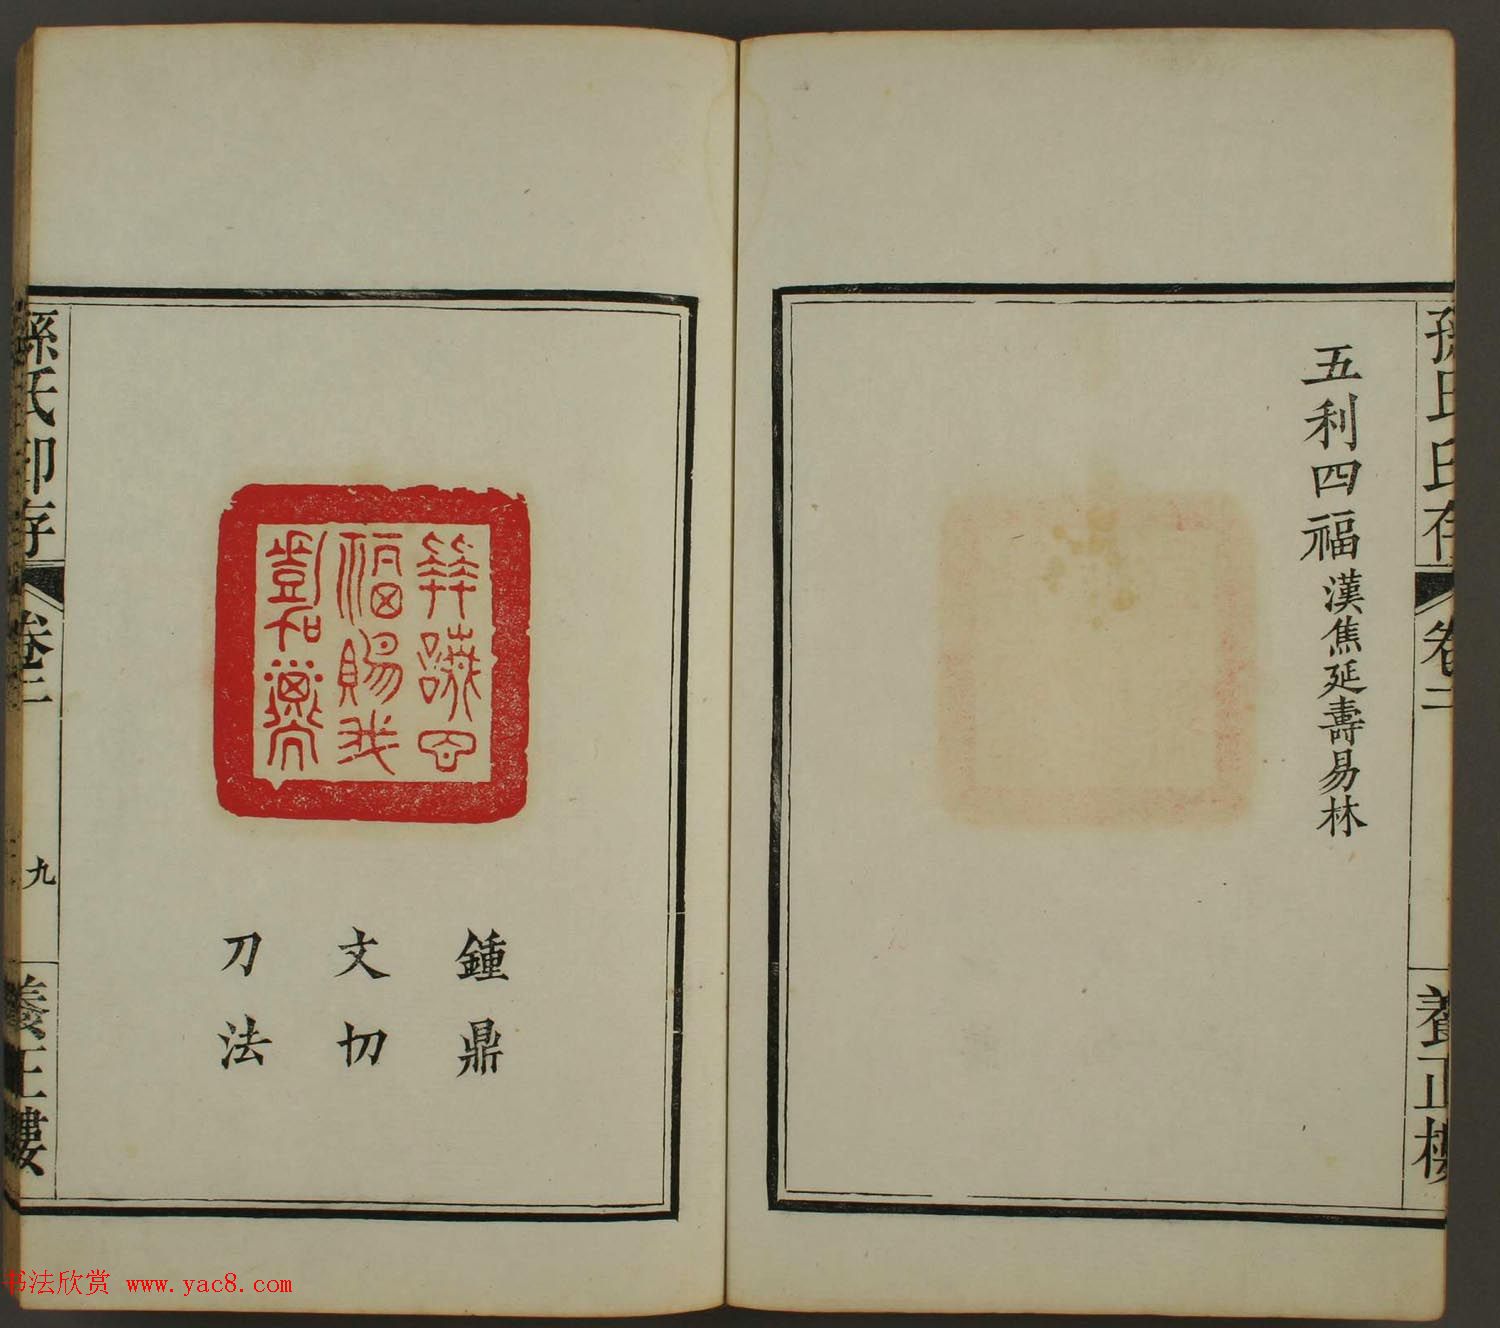 孫氏印存
卷二
養正樓
五利四福漢焦延壽易林
孫氏印存
卷二
九
養正樓
福賜我
鍾鼎
文切
刀法
书法欣赏 www.yac8.com